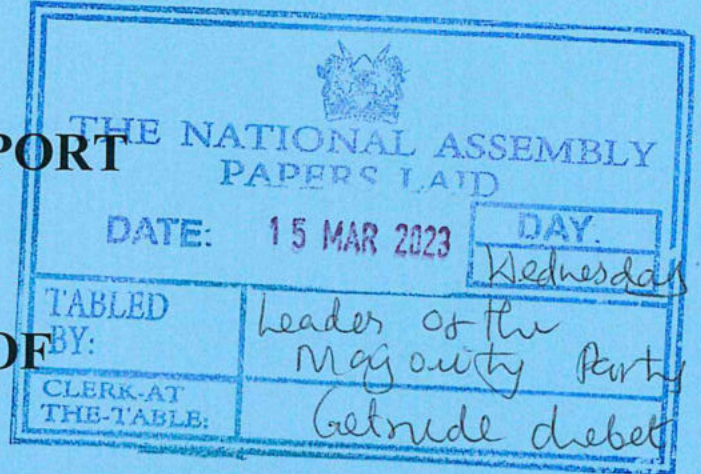 PORT
THE NATIONAL ASSEMBLY
PAPERS LAID
DATE: 15 MAR 2023 DAY.
Wednesday
TABLED BY: Leader of the
Majority Party
OF
CLERK-AT
THE-TABLE: Getrude Chebet